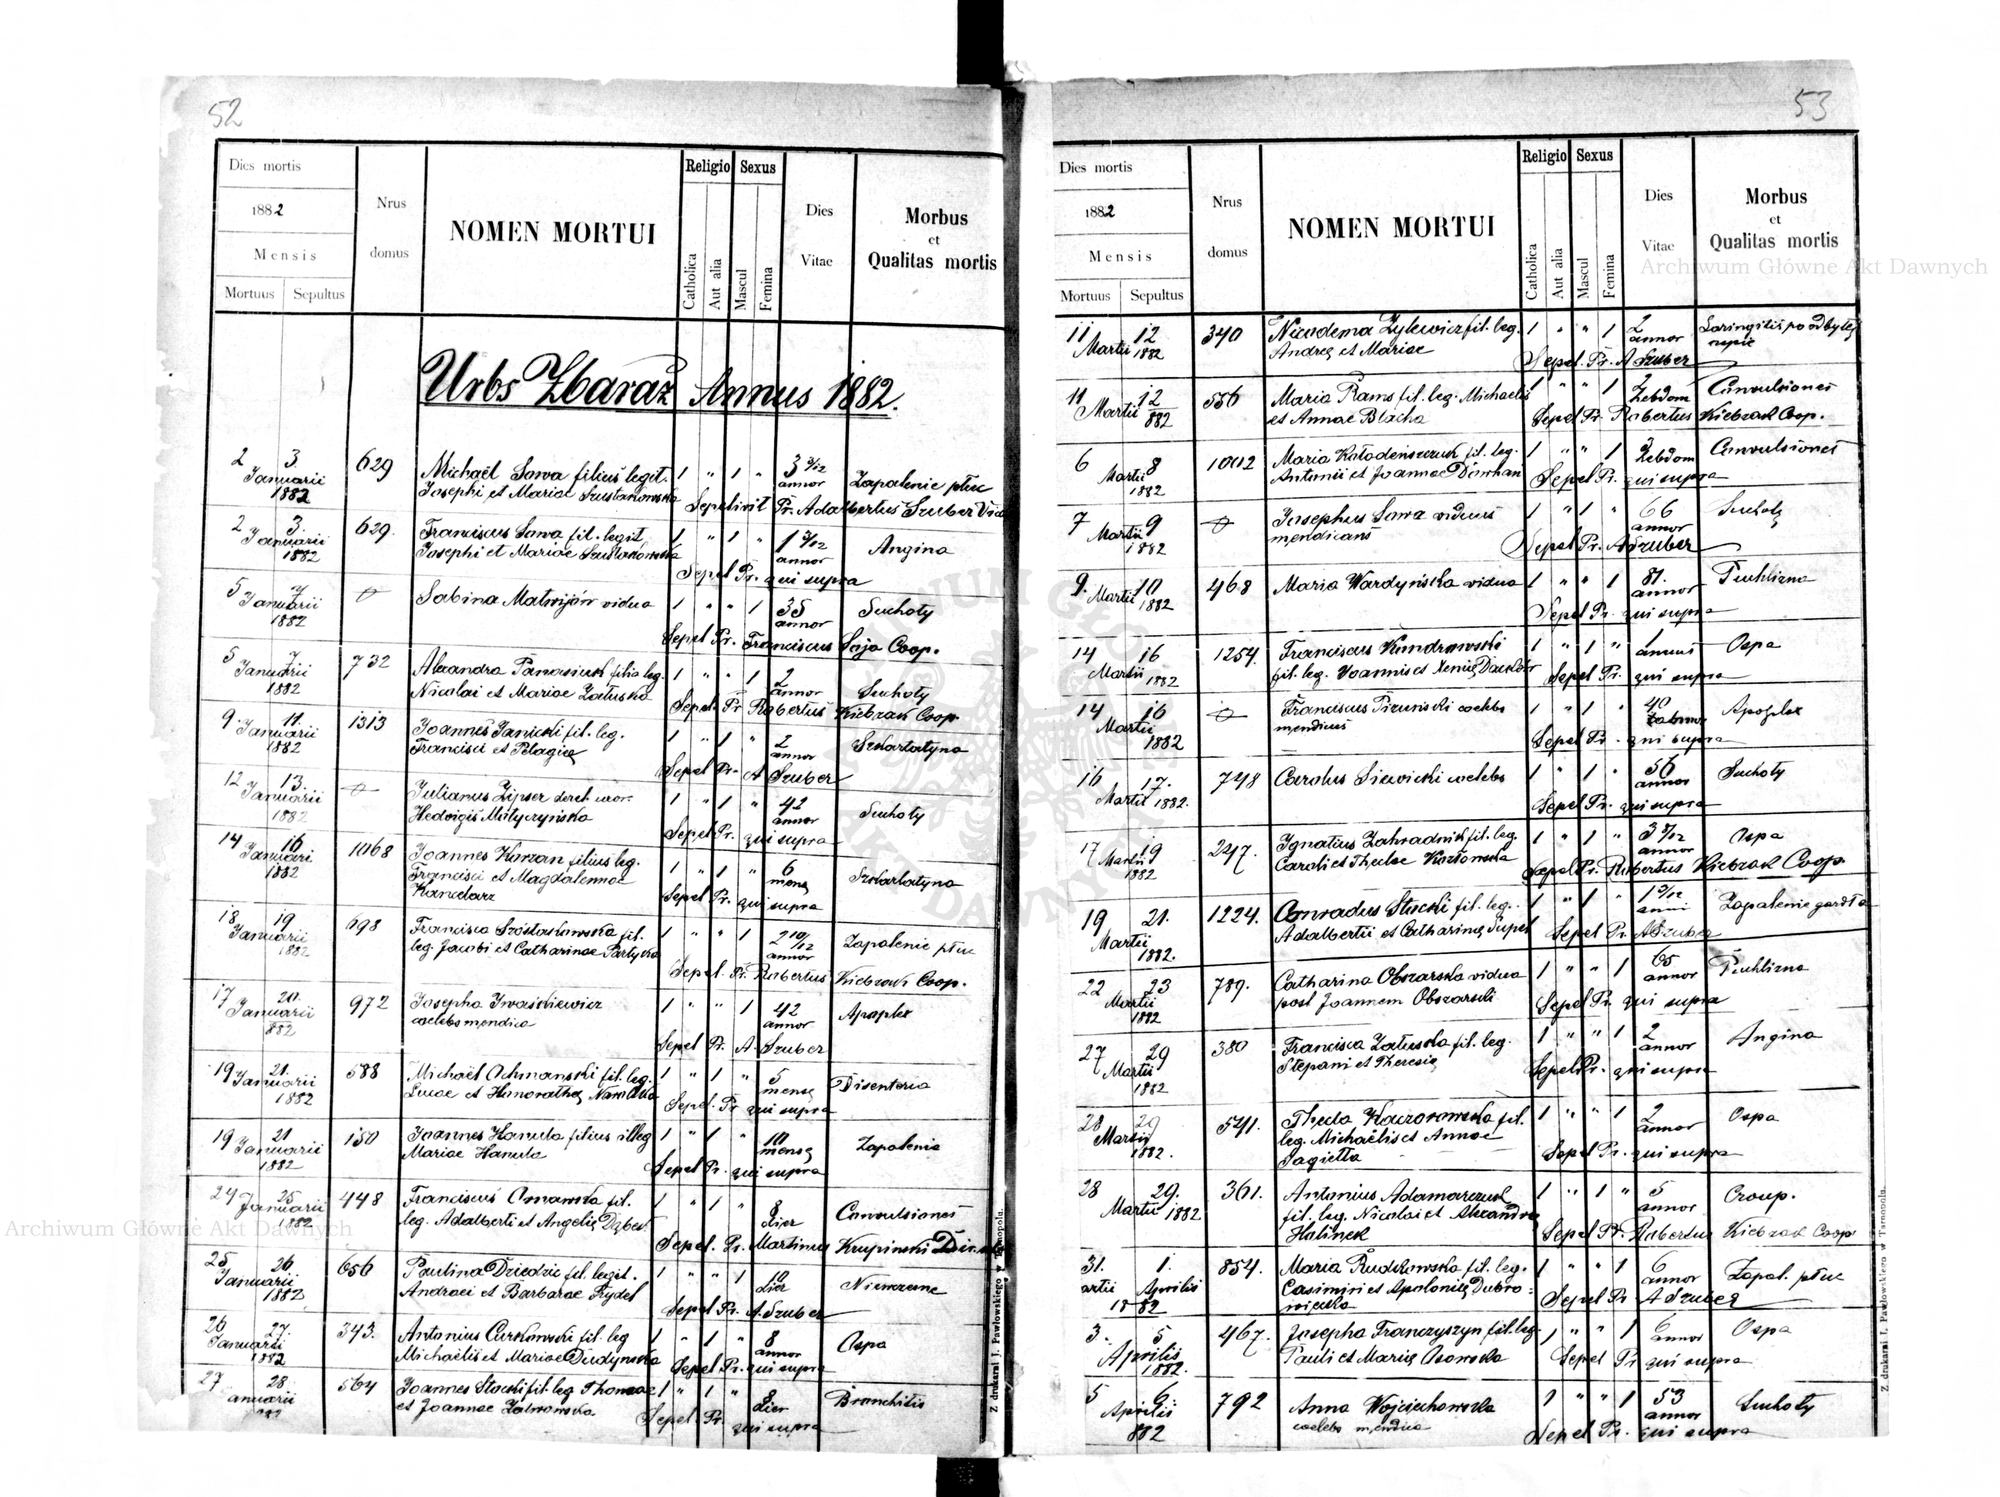 52
Dies mortis
1882
Mensis
Mortuus Sepultus
Nrus domus
NOMEN MORTUI
Religio
Catholica
Aut alia
Sexus
Mascul
Femina
Dies Vitae
Morbus
et
Qualitas mortis
Urbs Zbaraż Annus 1882.
2 3. 629 Michaël Sawa filius legit. 1 " 1 " 3 9/12
Januarii Josephi et Mariae annor Zapalenie płuc
1882 Sepelivit Pr. Adalbertus Szuber
2 3. 629. Franciscus Sawa fil. legit 1 " 1 "
Januarii Josephi et Mariae annor Angina
1882 Sepel Pr. qui supra
5 7 Sabina Matwijów vidua 1 " " 1 35 Suchoty
Januarii annor
1882 Sepel Pr. Franciscus Saja Coop.
5 7 732 Alexandra Panasiuk filia leg. 1 " " 1 2
Januarii Nicolai et Mariae Załuska annor Suchoty
1882 Sepel. Pr Robertus Kiebzak Coop.
9. 11. 1313 Joannes Janicki fil. leg. 1 " 1 " 2 Szkarlatyna
Januarii Francisci et Pelagiae annor
1882 Sepel Pr. A Szuber
12 13. Julianus Zipser 1 " 1 " 42 Suchoty
Januarii Hedvigis Matyczyńska annor
1882 Sepel Pr. qui supra
14 16 1068 Joannes Karzan filius leg.
Januari Francisci et Magdalennae 1 " 1 " 6 Szkarlatyna
1882 Kanclarz mens
Sepel Pr. qui supra
18 19 698 Francisca fil. 1 " " 1 2 10/12 Zapalenie płuc
Januarii leg. Jacobi et Catharinae Partyka annor
1882 Sepel. Pr. Robertus Kiebzak Coop.
17 20. 972 Josepha Iwaśkiewicz 1 " " 1 42 Apoplex
Januarii caelebs mendica annor
882 Sepel Pr. A. Szuber
19 21. 588 Michaël Achmanski fil. leg. 1 " 1 " 5 Disenteria
Januarii Lucae et Honorathae mens
1882 Sepel. Pr qui supra
19 21 150 Joannes Hanula filius illeg 1 " 1 " 10 Zapalenie
Januarii Mariae Hanula mens
1882 Sepel Pr. qui supra
24 25 448 Franciscus fil. 1 " 1 " 8 Convulsiones
Januarii leg. Adalberti et Angelię dier
1882 Sepel. Pr. Martinus Krupinski
25 26. 656 Paulina Dziedzic fil. legit. 1 " " 1 10
Januarii Andraei et Barbarae Rydel dier
1882 Sepel Pr. A. Szuber
26 27 343. Antonius Curkowski fil. leg 1 " 1 " 8 Ospa
Januarii Michaëlis et Mariae annor
1882 Sepel Pr. qui supra
27 28 564 Joannes Stocki fil. leg Thomae 1 " 1 " 8 Bronchitis
anuarii et Joannae dier
Sepel. Pr. qui supra
Z drukarni J. Pawłowskiego w Tarnopolu.
53
Dies mortis
1882
Mensis
Mortuus Sepultus
Nrus domus
NOMEN MORTUI
Religio
Catholica
Aut alia
Sexus
Mascul
Femina
Dies Vitae
Morbus
et
Qualitas mortis
11 12 340 Nicodema Zylewicz fil. leg. 1 " " 1 2 Laringitis po odbytej
Martii Andreę et Mariae annor ospie
1882 Sepel Pr. A Szuber
11 12 556 Maria Rams fil. leg. Michaelis 1 " " 1 2 Convulsiones
Martii et Annae Blacha hebdom
882 Sepel Pr. Robertus Kiebzak Coop.
6 8 1002 Maria fil. leg. 1 " " 1 3 Convulsiones
Martii Antonii et Joannae hebdom
1882 Sepel Pr. qui supra
7 9 Josephus Sawa viduus 1 " 1 " 66 Suchoty
Martii mendicans annor
1882 Sepel Pr. A Szuber
9. 10 468 Maria Wardyńska vidua 1 " " 1 81. Puchlizna
Martii annor
1882 Sepel Pr. qui supra
14 16 1254. Franciscus Kundrowski 1 " 1 " 1 Ospa
Martii fil. leg. Joannis et Xenię annus
1882 Sepel Pr. qui supra
14 16 Franciscus caelebs 1 " 1 " 40 Apoplex
Martii mendicus
1882 Sepel Pr. qui supra
16 17. 748 Carolus Siewicki caelebs 1 " 1 " 56 Suchoty
Martii 1882. annor
Sepel Pr. qui supra
17 19 247. Ignatius Zahradnik fil. leg. 1 " 1 " Ospa
Martii Caroli et Theclae Kozłowska annor
1882 Sepel Pr. Robertus Kiebzak Coop.
19 21. 1224. Conradus Stocki fil. leg. 1 " 1 " Zapalenie gardła
Martii Adalberti et Catharinę anni
1882. Sepel Pr. A Szuber
22 23 789. Catharina Obszarska vidua 1 " " 1 65 Puchlizna
Martii post Joannem Obszarski annor
1882 Sepel Pr. qui supra
27 29 380 Francisca Załuska fil. leg. 1 " " 1 2 Angina
Martii Stepani et Theresię annor
1882 Sepel Pr. qui supra
28 29 541. Thecla Kaczorowska fil. 1 " " 1 2 Ospa
Martii leg. Michaëlis et Annae annor
1882. Sagietta Sepel Pr. qui supra
28 29. 361. Antonius Adamarczuk 1 " 1 " 5 Croup.
Martii 1882 fil. leg. Nicolai et Alexandrę annor
Halinek Sepel Pr. Robertus Kiebzak Coop
31. 1. 854. Maria Rudkowska fil. leg. 1 " " 1 6 Zapal. płuc
artii Aprilis Casimiri et Apolonię Dubro= annor
1882 wiecka Sepel Pr A Szuber
3. 5 467. Josepha Franczyszyn fil. leg. 1 " " 1 6 Ospa
Aprilis Pauli et Marię Osowska annor
1882. Sepel Pr qui supra
5 6 792 Anna Wojciechowska 1 " " 1 53 Suchoty
Aprilis caelebs mendica annor
882 Sepel Pr. qui supra
Z drukarni J. Pawłowskiego w Tarnopolu.
Archiwum Główne Akt Dawnych
Archiwum Główne Akt Dawnych